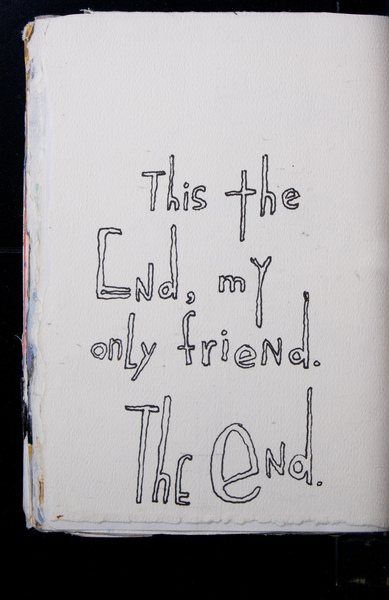 This the
End, my
only friend.
The end.